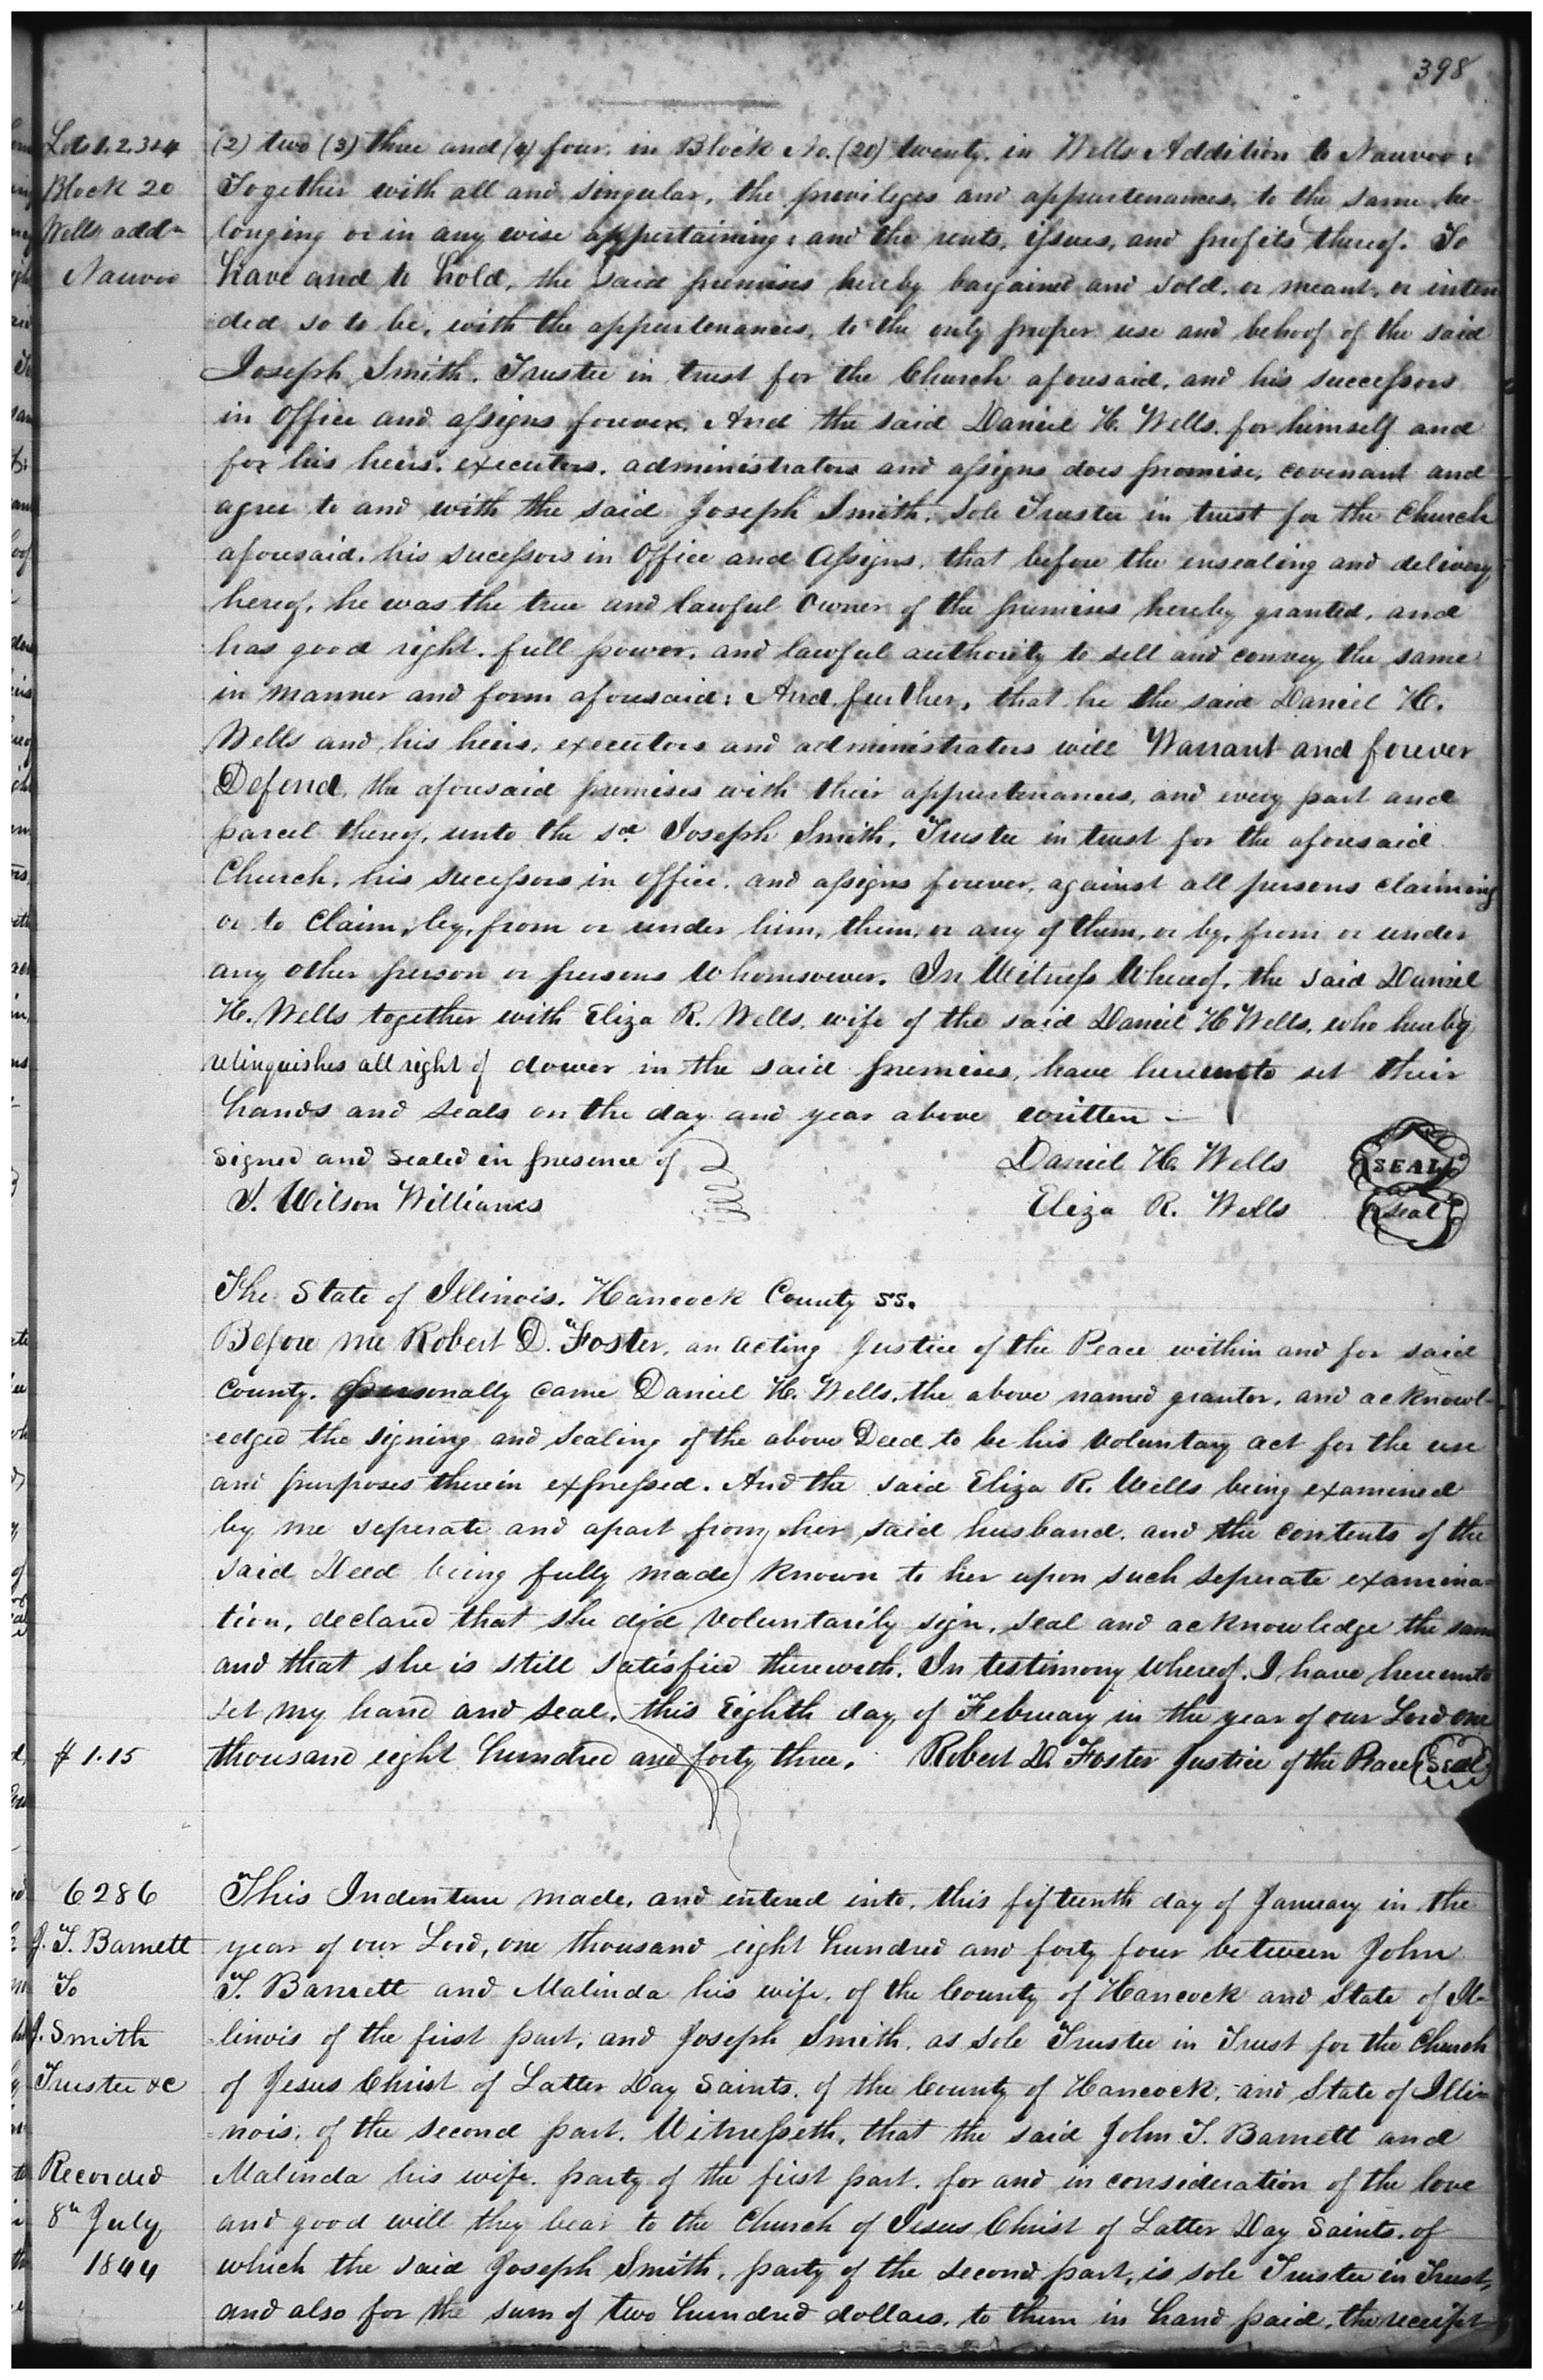 398
Lots 1. 2. 3 & 4
Block 20
Wells addn
Nauvoo
(2) two (3) three and (4) four. in Block No. (20) twenty. in Wells Addition to Nauvoo:
Together with all and singular, the privileges and appurtenances, to the same be-
longing or in any wise appertaining: and the rents, issues, and profits thereof. To
have and to hold, the said premises hereby bargained and sold. or meant. or inten
ded so to be, with the appurtenances, to the only proper use and behoof of the said
Joseph Smith. Trustee in trust for the Church aforesaid. and his successors
in Office and assigns forever. And the said Daniel H. Wells. for himself and
for his heirs. executors. administrators and assigns does promise, covenant and
agree to and with the said Joseph Smith. Sole Trustee in trust for the Church
aforesaid. his sucessors in Office and Assigns. that before the ensealing and delivery
hereof, he was the true and lawful Owner of the premises hereby granted, and
has good right. full power. and lawful authority to sell and convey the same
in manner and form aforesaid: And further, that he the said Daniel H.
Wells and his heirs, executors and administrators will Warrant and forever
Defend, the aforesaid premises with their appurtenances, and every part and
parcel thereof, unto the sd. Joseph Smith, Trustee in trust for the aforesaid
Church, his successors in office. and assigns forever, against all persons claiming
or to Claim, by, from or under him, them, or any of them, or by, from or under
any other person or persons Whomsoever. In Witness Whereof, the said Daniel
H. Wells together with Eliza R. Wells. wife of the said Daniel H Wells, who hereby
relinquishes all right of dower in the said premises, have hereunto set their
hands and seals on the day and year above written –
Signed and Sealed in presence of
J. Wilson Williams
Daniel H. Wells SEAL
Eliza R. Wells Seal
The State of Illinois. Hancock County SS.
Before me Robert D. Foster, an acting Justice of the Peace within and for said
County. personally came Daniel H. Wells, the above named grantor, and acknowl-
edged the signing and sealing of the above Deed to be his Voluntary act for the use
and purposes therein expressed. And the said Eliza R. Wells being examined
by me seperate and apart from her said husband. and the contents of the
said Deed being fully made known to her upon such seperate examina-
tion, declared that she did Voluntarily sign, seal and acknowledge the same
and that she is still satisfied therewith. In testimony Whereof. I have hereunto
set my hand and seal, this Eighth day of February in the year of our Lord one
$ 1.15
thousand eight hundred and forty three. Robert D. Foster Justice of the Peace Seal
6286
J. T. Barnett
To
J. Smith
Trustee &c
Recorded
8th July
1844
This Indenture made, and entered into, this fifteenth day of January in the
year of our Lord, one thousand eight hundred and forty four between John
T. Barnett and Malinda his wife. of the County of Hancock and State of Il-
linois of the first part, and Joseph Smith. as sole Trustee in Trust for the Church
of Jesus Christ of Latter Day Saints. of the County of Hancock, and State of Illi-
nois. of the second part. Witnesseth, that the said John T. Barnett and
Malinda his wife. party of the first part. for and in consideration of the love
and good will they bear to the Church of Jesus Christ of Latter Day Saints. of
which the said Joseph Smith, party of the second part, is sole Trustee in Trust,
and also for the sum of two hundred dollars, to them in hand paid, the receipt